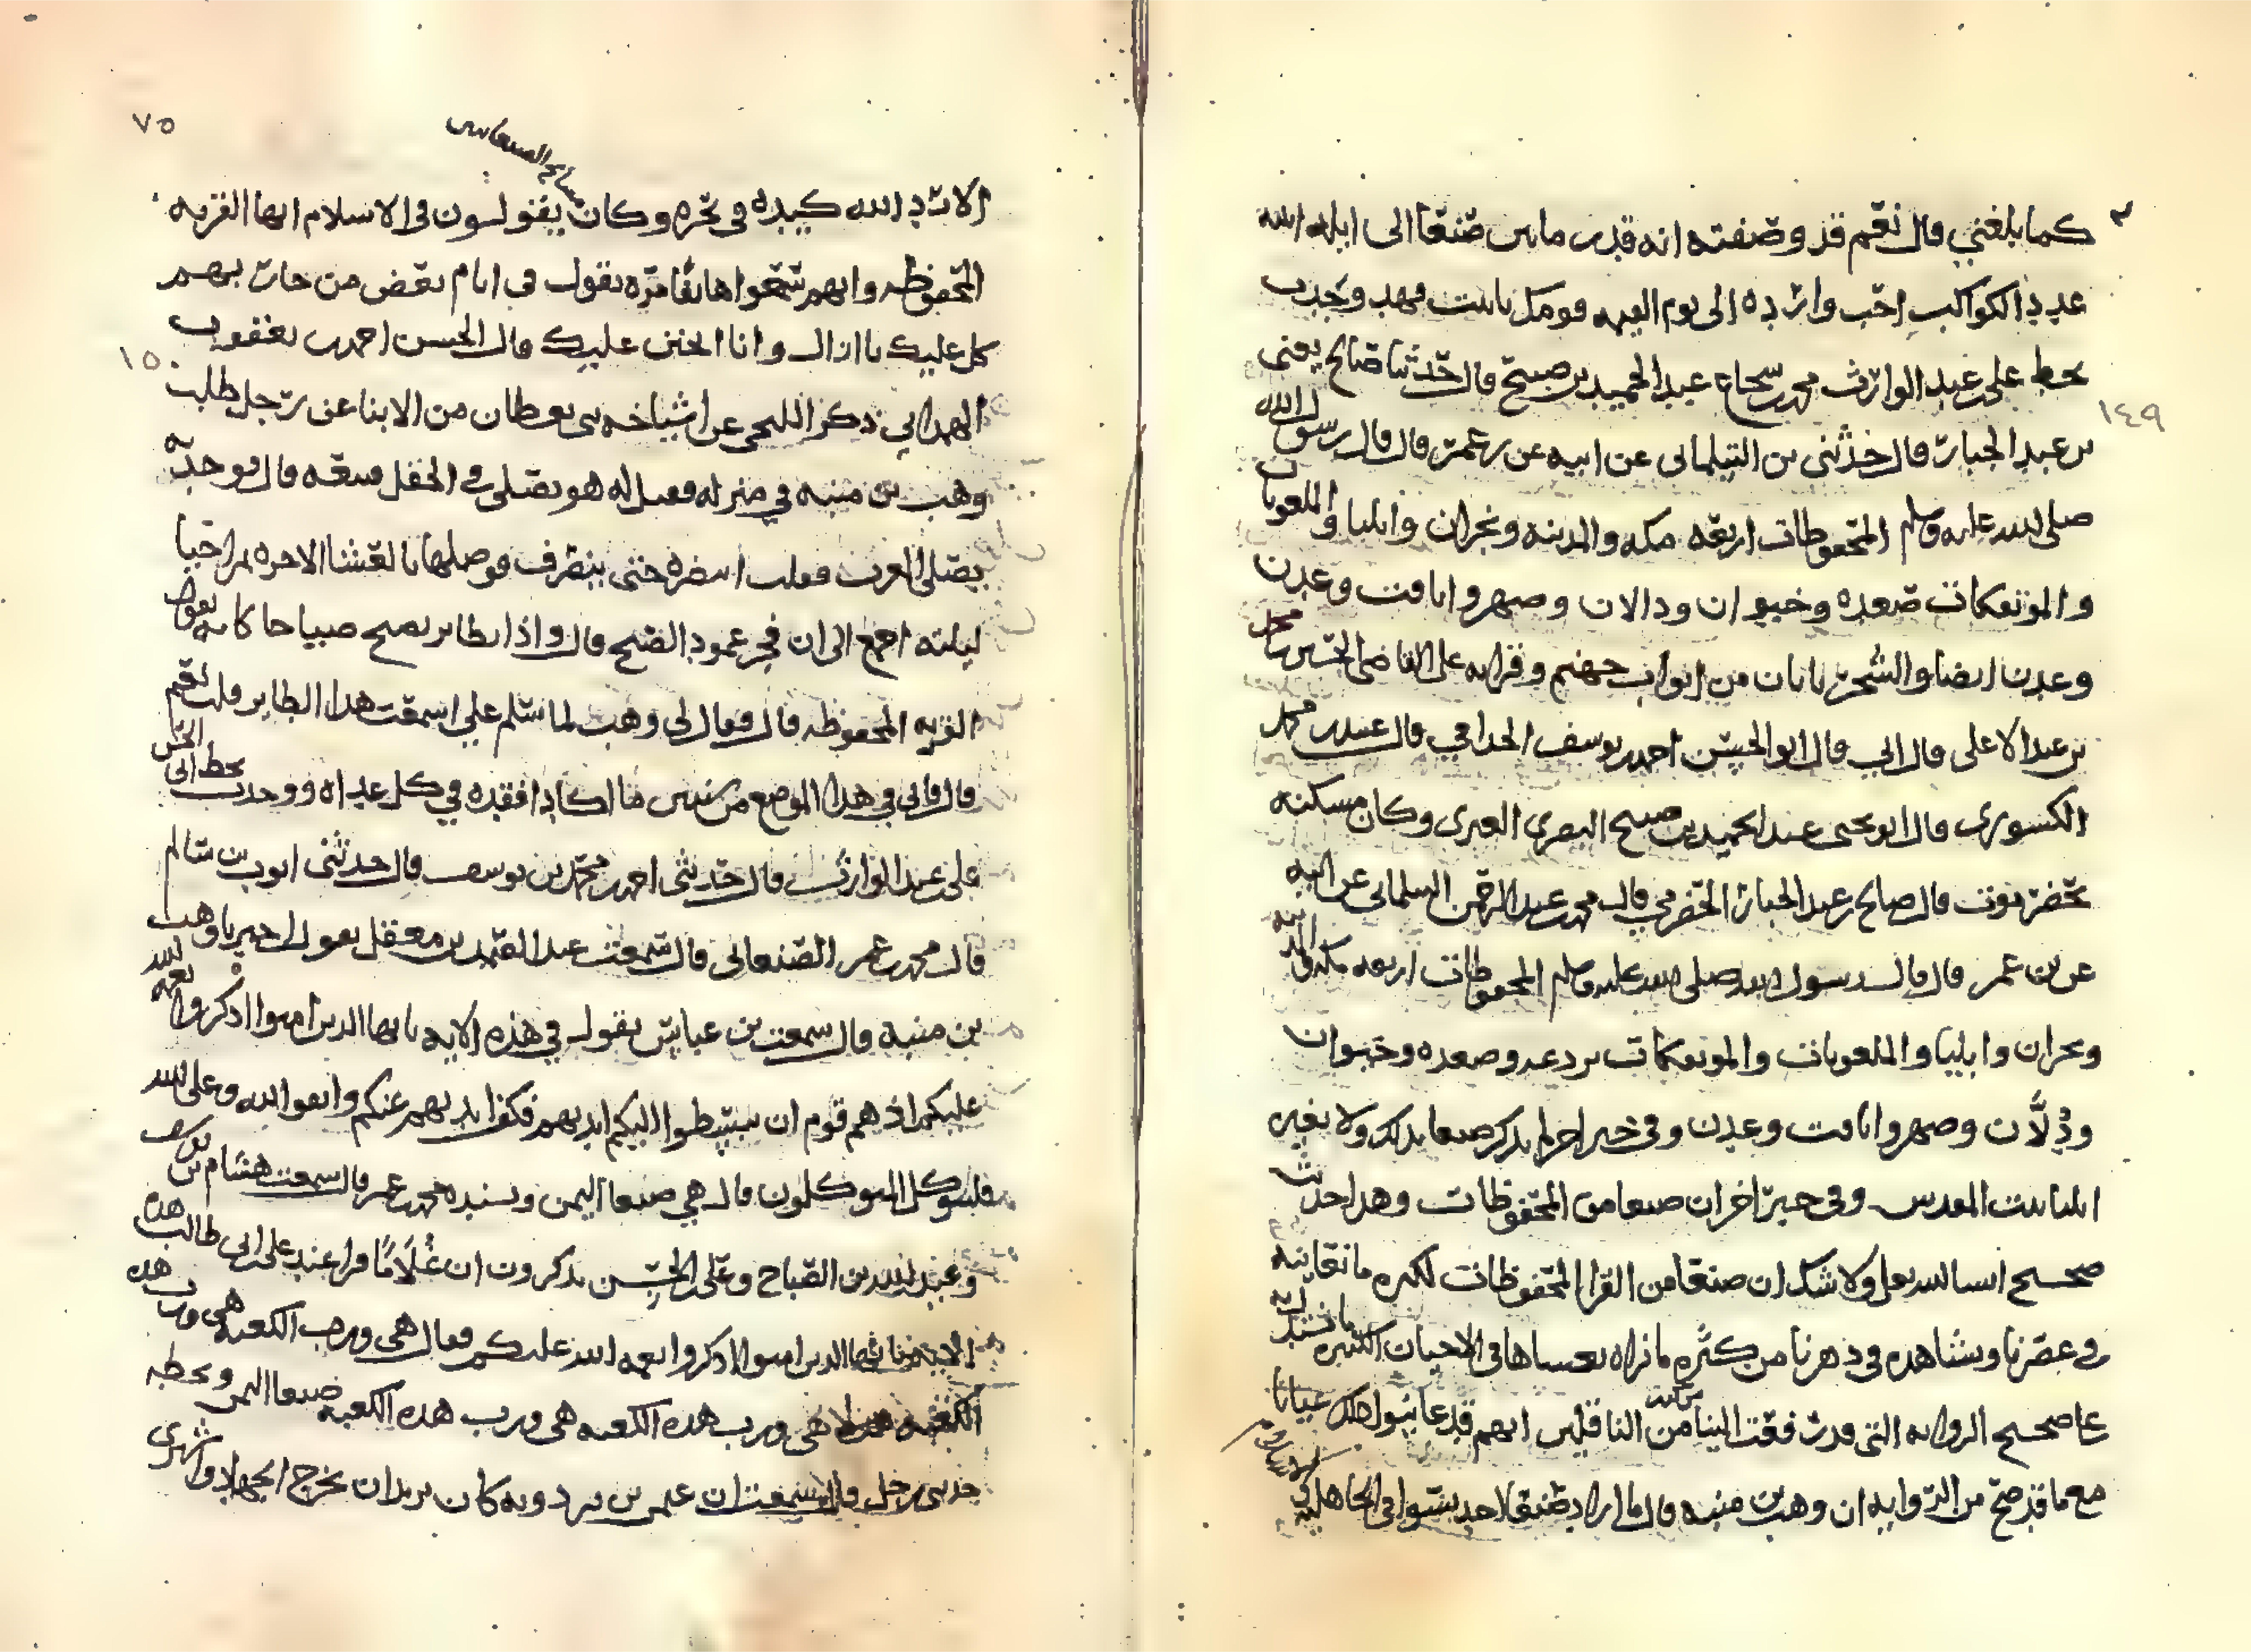 كما بلغني قال نعم قد وصفته انه قدر ما بين صنعا الى ايله
عدد الكواكب احب وارده الى يوم القيمه
بخط علي بن عبد الوارث محمد بن شجاع عبد الحميد بن صبيح قال حدثنا صالح يعني
بن عبد الجبار قال حدثني بن البيلماني عن ابيه عن بن عمر قال قال رسول الله
صلى الله عليه وسلم المحفوظات اربعه مكه والمدينه ونجران وايليا والملعونات
والموتفكات صعده وخيوان ودالان وصهر وايافت وعدن
وعدن ايضا والشحر بابان من ابواب جهنم وقرايه على القاضي الحسين بن محمد
بن عبد الاعلى قال ابي قال ابو الحسين احمد بن يوسف الحذاقي قال عبيد بن محمد
الكسوري قال ابو يحيى عبد الحميد بن صبيح البصري العبري وكان مسكنه
بحضرموت قال صالح بن عبد الجبار الحضرمي قال محمد بن عبد الرحمن السلماني عن ابيه
عن بن عمر قال قال رسول الله صلى الله عليه وسلم المحفوظات اربعه مكه والمدينه
ونجران وايليا والملعونات والموتفكات بردعه وصعده وخيوان
ودلان وصهر وايافت وعدن وفي خبر اخر لم يذكر صنعا بذلك ولا بغير
ايليا بيت المقدس وفي خبر اخر ان صنعا من المحفوظات وهذا حديث
صحيح ان شا الله تعالى ولا شك ان صنعا من القرا المحفوظات لكثره ما نعاينه
في عصرنا ونشاهده في دهرنا من كثره ما نراه بعيننا في الاحيان الكثيره
عيانا
مع ما قد صح من الروايه ان وهب بن منبه قال ما اراد صنعا احد بسوا في الجاهليه
١٤٩
٧٥
الا رد الله كيده في نحره وكان مشايخ الصنعانيين يقولون في الاسلام انها القريه
المحفوظه وانهم سمعوا هاتفا مره يقول في ايام بعض من حارب بهم
كل عليك يا ازال وانا اتحنن عليك قال الحسن احمد بن يعقوب
١٥٠
الهمداني ذكر اللحجي عن اشياخه من الابنا عن رجل طلب
وهب بن منبه في منزله فقيل له هو يصلي في الحقل قال فوجدته
يصلي المغرب فقلت انتظره حتى ينصرف فوصلها بالعشا الاخره ثم احيا
ليلته اجمع الى ان فجر عمود الصبح قال واذا بطاير يصيح صياحا كانه يقول
القريه المحفوظه قال فقال لي وهب لما سلم علي اسمعت هذا الطاير قلت نعم
قال فاني في هذا الموضع من سنين ما اكاد افقده في كل غداه ووجدت بخط ابي الحسن
علي بن عبد الوارث قال حدثني احمد بن محمد بن يوسف قال حدثني ايوب بن سالم
قال محمد بن عمر الصنعاني قال سمعت عبد الصمد بن معقل يقول اخبرنا وهب
بن منبه قال سمعت بن عباس يقول في هذه الايه يايها الذين امنوا اذكروا نعمه الله
عليكم اذ هم قوم ان يبسطوا اليكم ايديهم فكف ايديهم عنكم واتقوا الله وعلى الله
فليتوكل المتوكلون قال هي صنعا اليمن وسنده محمد بن عمر قال سمعت هشام بن يوسف
وعبد الله بن الصباح وعلي بن الحسين يذكرون ان غلاما قرا عند علي بن ابي طالب هذه
الايه يايها الذين امنوا اذكروا نعمه الله عليكم فقال هي ورب الكعبه هي ورب هذه
الكعبه هي ورب هذه الكعبه هي ورب هذه الكعبه صنعا اليمن وبخطه
حدثني رجل قال سمعت ان عيسى بن يزدويه كان يريد ان يخرج الجهاد واشترى